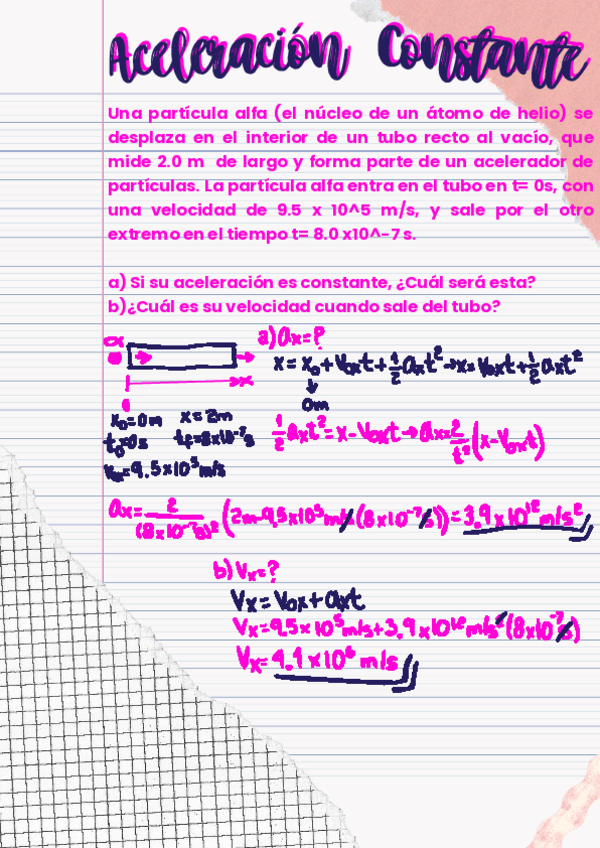 Aceleración Constante
Una partícula alfa (el núcleo de un átomo de helio) se
desplaza en el interior de un tubo recto al vacío, que
mide 2.0 m de largo y forma parte de un acelerador de
partículas. La partícula alfa entra en el tubo en t= 0s, con
una velocidad de 9.5 x 10^5 m/s, y sale por el otro
extremo en el tiempo t= 8.0 x10^-7 s.
a) Si su aceleración es constante, ¿Cuál será esta?
b)¿Cuál es su velocidad cuando sale del tubo?
α
a) ax=?
x = x₀ + v₀xt + 1/2 axt² → x = v₀xt + 1/2 axt²
x
0m
0
x₀=0m x=2m
t₀=0s tf=8x10⁻⁷s
v₀x=9.5x10⁵m/s
1/2 axt² = x - v₀xt → ax = 2/t² (x - v₀xt)
ax = 2/(8x10⁻⁷s)² (2m-9.5x10⁵m/s(8x10⁻⁷s)) = 3.9x10¹²m/s²
b) Vx=?
Vx = V₀x + axt
Vx=9.5x10⁵m/s+3.9x10¹²m/s²(8x10⁻⁷s)
Vx= 4.1x10⁶ m/s